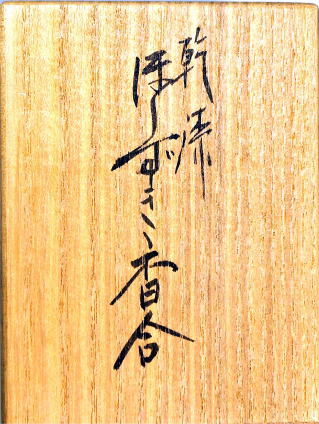 乾漆
ほゝずき香合